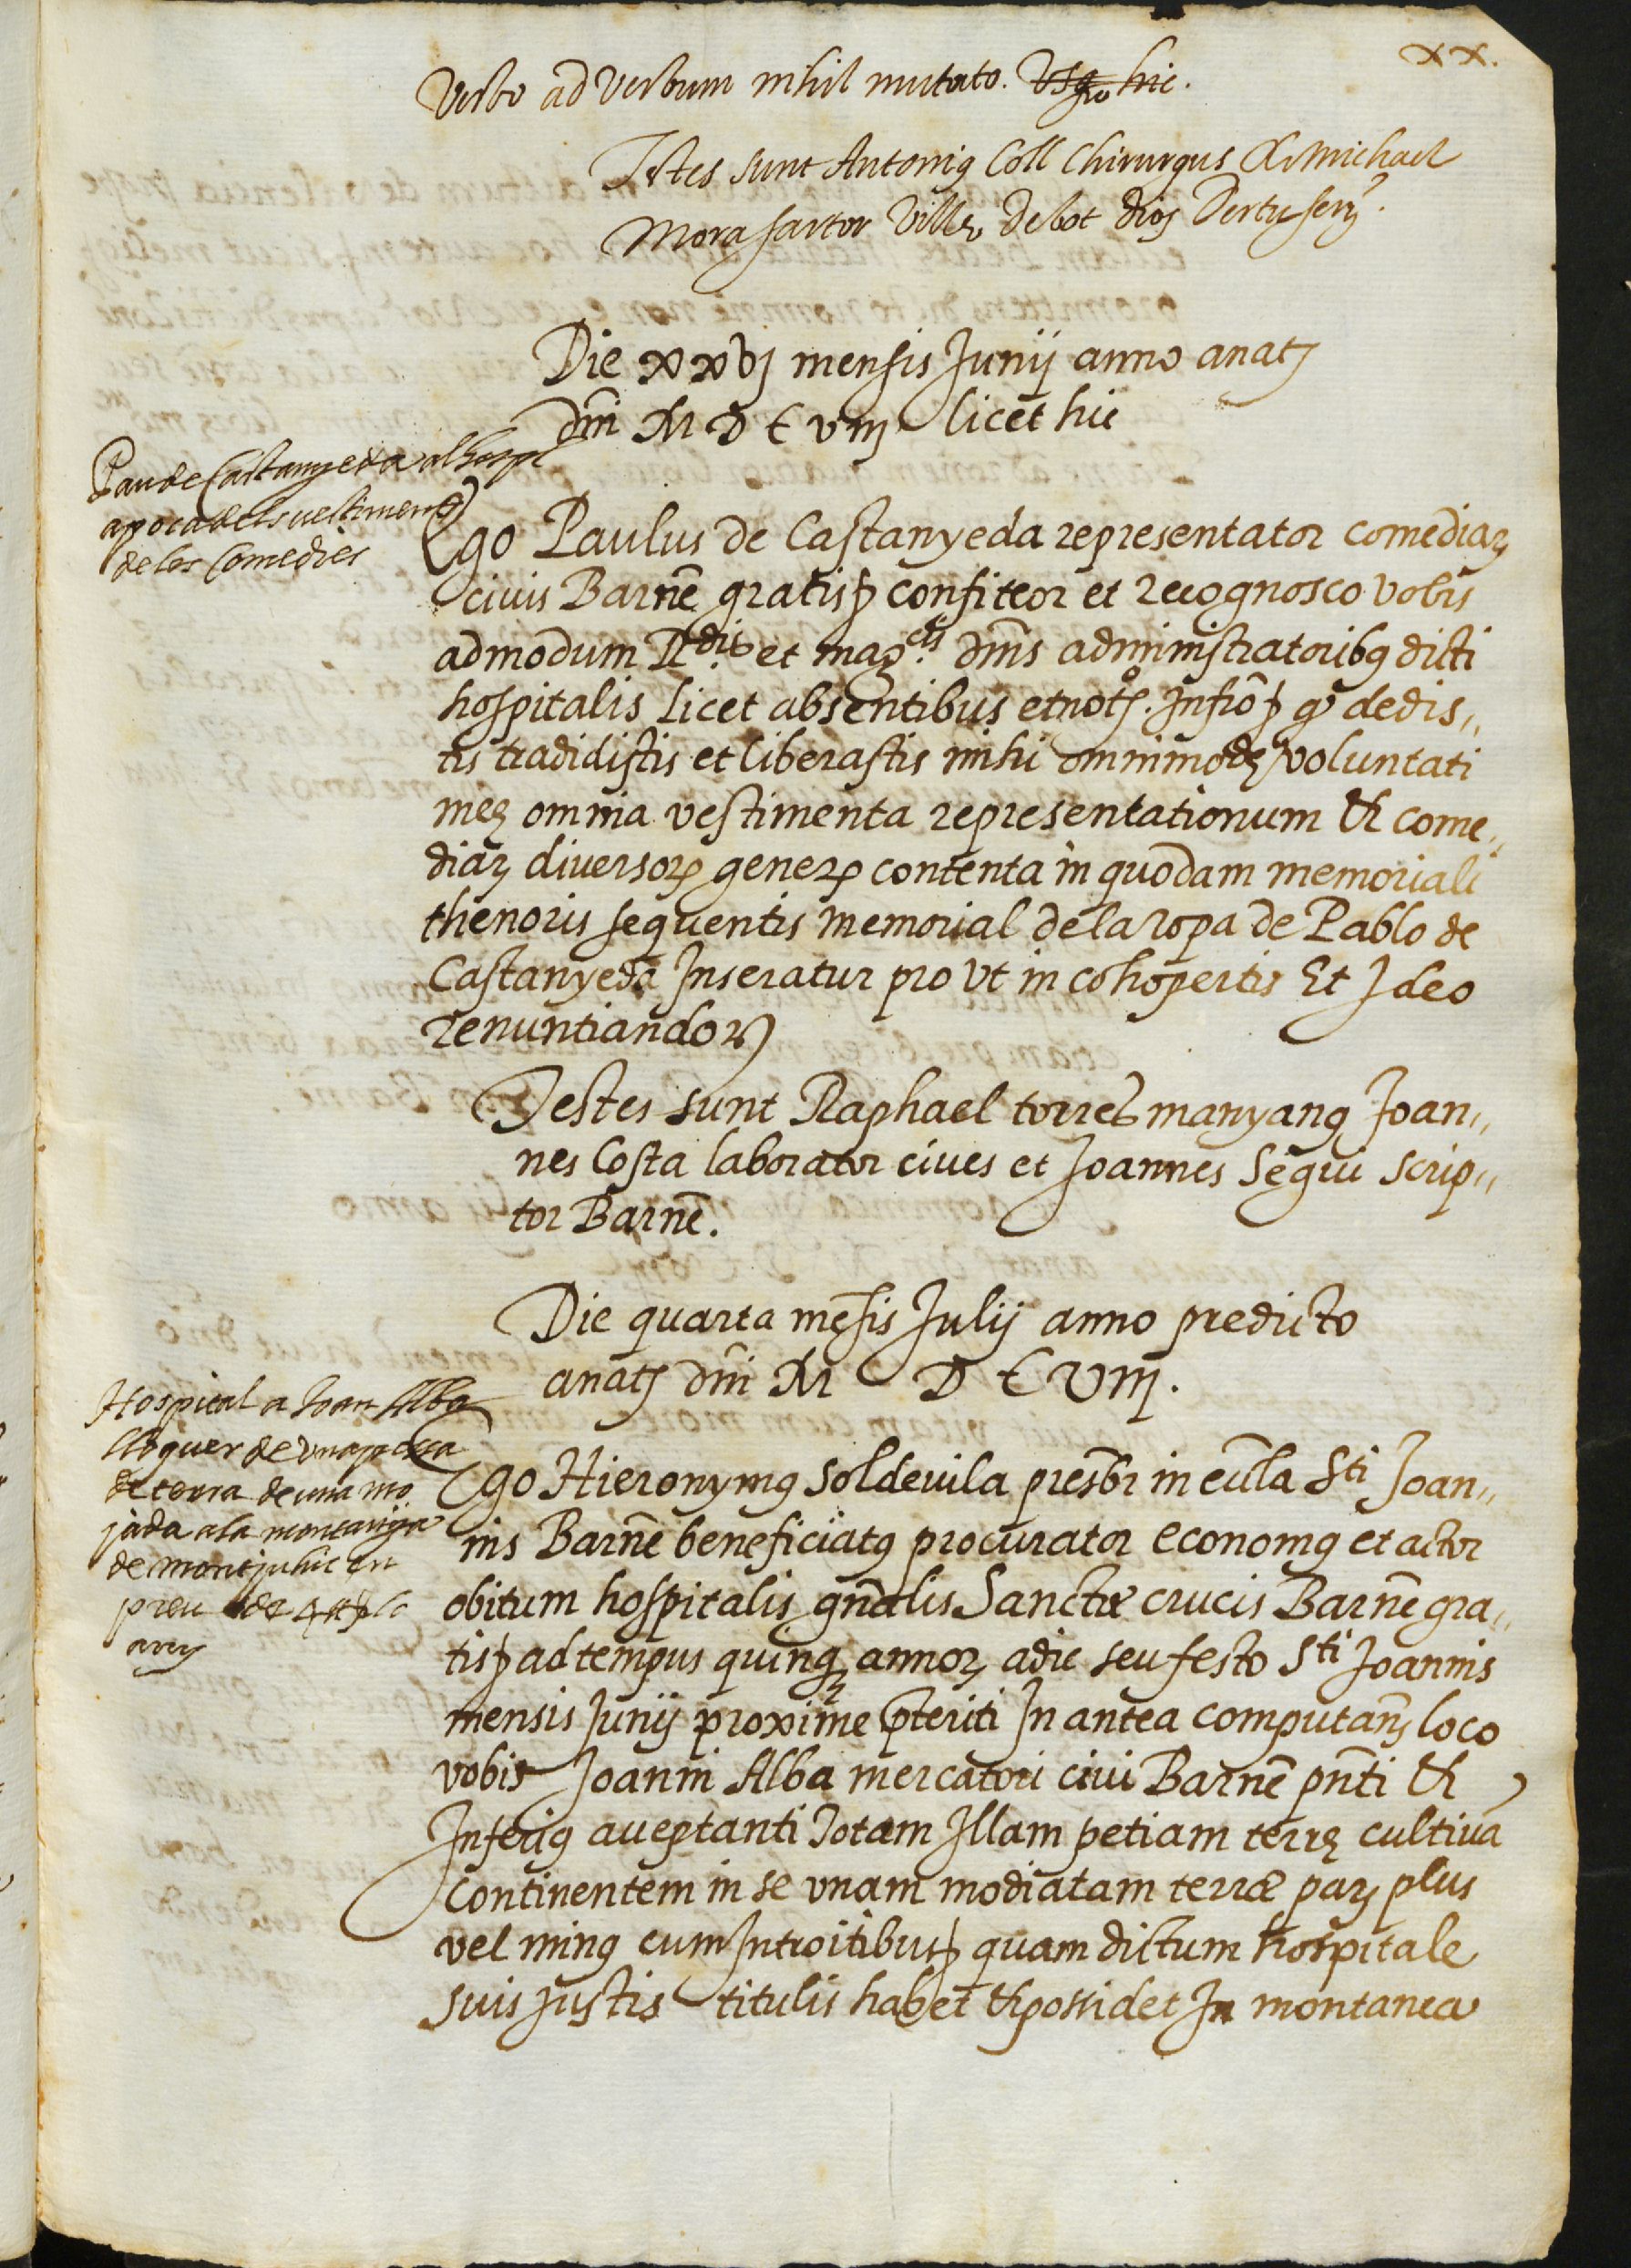 XX.
Verbo ad Verbum nihil mutato. hic.
Testes sunt Antoniꝯ Coll Chirurgus & Michael
Mora sartor Villę debot dioj Dertusen̄.
Die xxvj mensis Junij anno anatj
dn̄i M D C viij licet hic
Pau de Castanyeda al hospl
apoca dels vestiments
de les Comedies
Ego Paulus de Castanyeda representator comediaꝝ
ciuis Barnē gratis ꝑ confiteor et recognosco vobis
admodum Rdis. et magcis. dn̄is administratoribꝯ dicti
hospitalis licet absentibus et notꝭ. Infrō ꝑ qꝫ dedis„
tis tradidistis et liberastis mihi omnimodę voluntati
meę omnia vestimenta representationum & come„
diaꝝ diuersoꝝ geneꝝ contenta in quodam memoriali
thenoris sequentis memorial de la ropa de Pablo de
Castanyeda Inseratur pro vt in cohopertis Et Ideo
renuntiando &
Testes sunt Raphael torres manyanꝯ Joan„
nes Costa laborator ciues et Joannes Segui scrip„
tor Barnē.
Die quarta mēsis Julij anno predicto
anatj dn̄i M D C viij.
Hospital a Joan Alba
lloguer de vna pessa
de terra de vna mo
jada a la montanya
de Montjuhic en
preu de
any
Ego Hieronymꝯ Soldeuila presbr̄ in ecl̄a Sti Joan„
nis Barnē beneficiatꝯ procurator economꝯ et actor
obitum hospitalis gn̄alis Sanctæ crucis Barnē gra„
tis ꝑ ad tempus quinqꝫ annoꝝ a die seu festo Sti Joannis
mensis Junij proxime p̄teriti In antea computan̄ loco
vobis Joanni Alba mercatori ciui Barnē pn̄ti &
Inferiꝯ acceptanti Totam Illam petiam terrę cultiuā
continentem in se vnam modiatam terræ paꝝ plus
vel minꝯ cum Introitibus ꝑ quam dictum hospitale
suis justis titulis habet & possidet In montanea